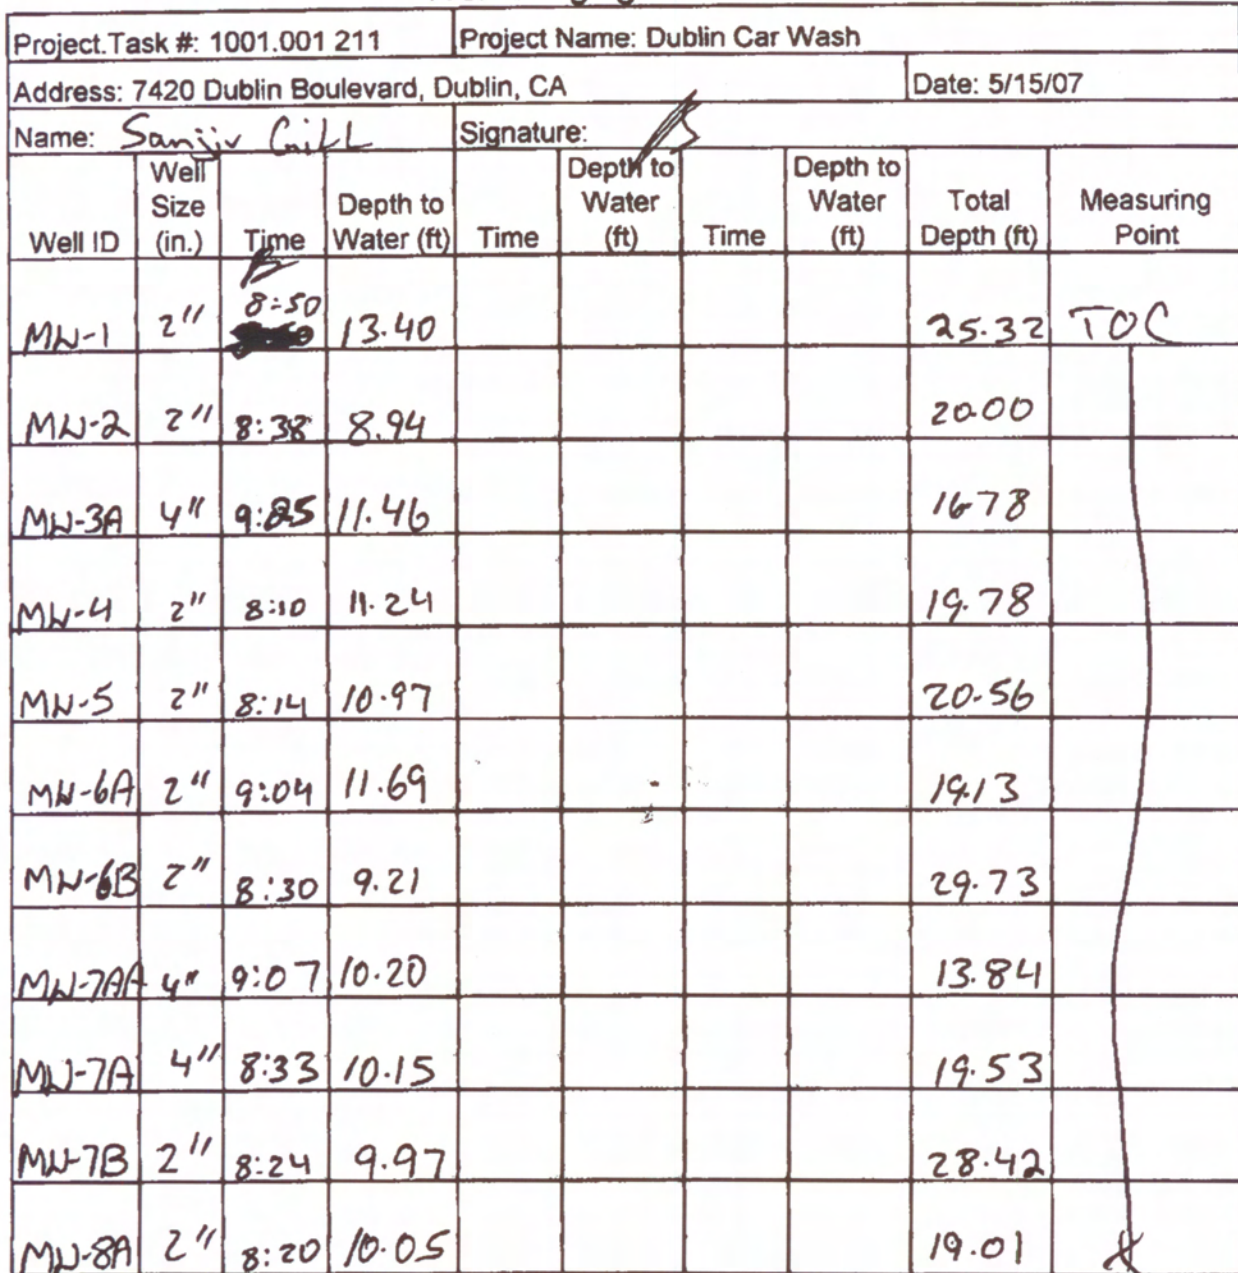 Project.Task #: 1001.001 211 Project Name: Dublin Car Wash
Address: 7420 Dublin Boulevard, Dublin, CA Date: 5/15/07
Name: Sanjiv Gill Signature:
Well ID Well Size (in.) Time Depth to Water (ft) Time Depth to Water (ft) Time Depth to Water (ft) Total Depth (ft) Measuring Point
MW-1 2" 8:50 13.40 25.32 TOC
MW-2 2" 8:38 8.94 20.00
MW-3A 4" 9:25 11.46 16.78
MW-4 2" 8:10 11.24 19.78
MW-5 2" 8:14 10.97 20.56
MW-6A 2" 9:04 11.69 19.13
MW-6B 2" 8:30 9.21 29.73
MW-7AA 4" 9:07 10.20 13.84
MW-7A 4" 8:33 10.15 19.53
MW-7B 2" 8:24 9.97 28.42
MW-8A 2" 8:20 10.05 19.01